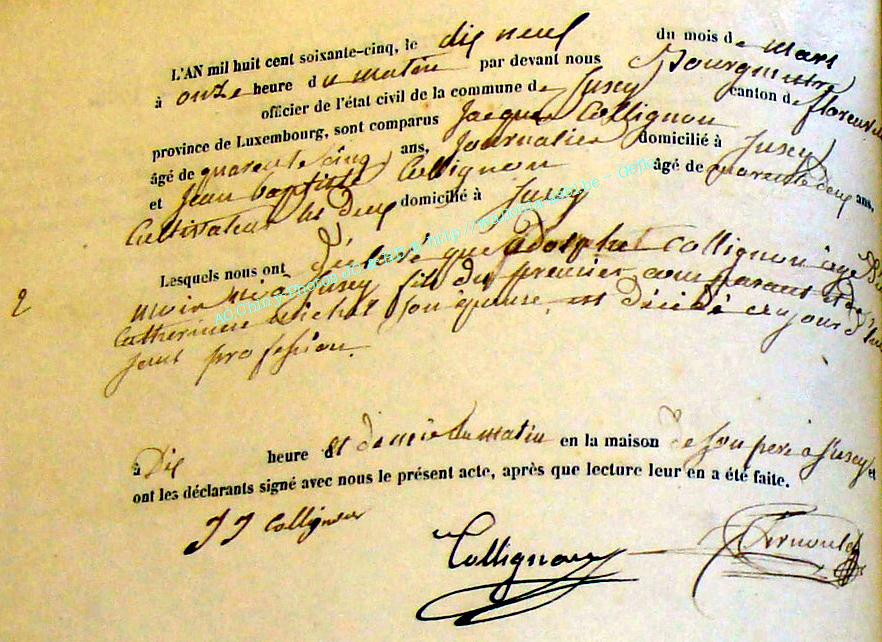 L'AN mil huit cent soixante-cinq, le dix neuf du mois de mars
à onze heure du matin par devant nous Bourgmestre
officier de l'état civil de la commune de Jusey canton de florenville
province de Luxembourg, sont comparus Jacques Collignon
âgé de quarente cinq ans, Journalier domicilié à Jusey
et Jean baptiste Collignon âgé de quarente deux ans,
Cultivateur les deux domicilié à Jusey
Lesquels nous ont déclaré que adolphe Collignon âgé
mois né à Jusey fils du premier comparant et de
Catherinne Michel son epouse est décédé aujourd'hui
sant profession.
2
à Dix heure et demie du matin en la maison de son père a Jusey et
ont les déclarants signé avec nous le présent acte, après que lecture leur en a été faite.
J J Collignon
Collignon